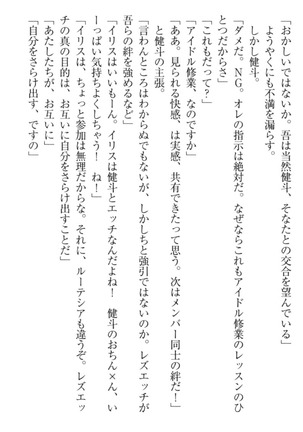 「おかしいではないか。吾は当然健斗、そなたとの交合を望んでいる」
ようやくにも不満を漏らす。
しかし健斗。
「ダメだ。NG。オレの指示は絶対だ。なぜならこれもアイドル修業のレッスンのひ
とつだからさ」
「これもだって？」
「アイドル修業、なのですか」
「ああ。見られる快感、は実感、共有できたって思う。次はメンバー同士の絆だ！」
と健斗の主張。
「言わんところはわからぬでもないが、しかしちと強引ではないのか。レズエッチが
吾らの絆を強めるなど」
「イリスはいいもーん。イリスは健斗とエッチなんだよね！　健斗のおちん×ん、い
ーっぱい気持ちよくしちゃう！　ね！」
「イリスは、ちょっと参加は無理だからな。それに、ルーテシアも違うぞ。レズエッ
チの真の目的は、お互いに自分をさらけ出すことだ」
「あたしたちが、お互いに」
「自分をさらけ出す、ですの」